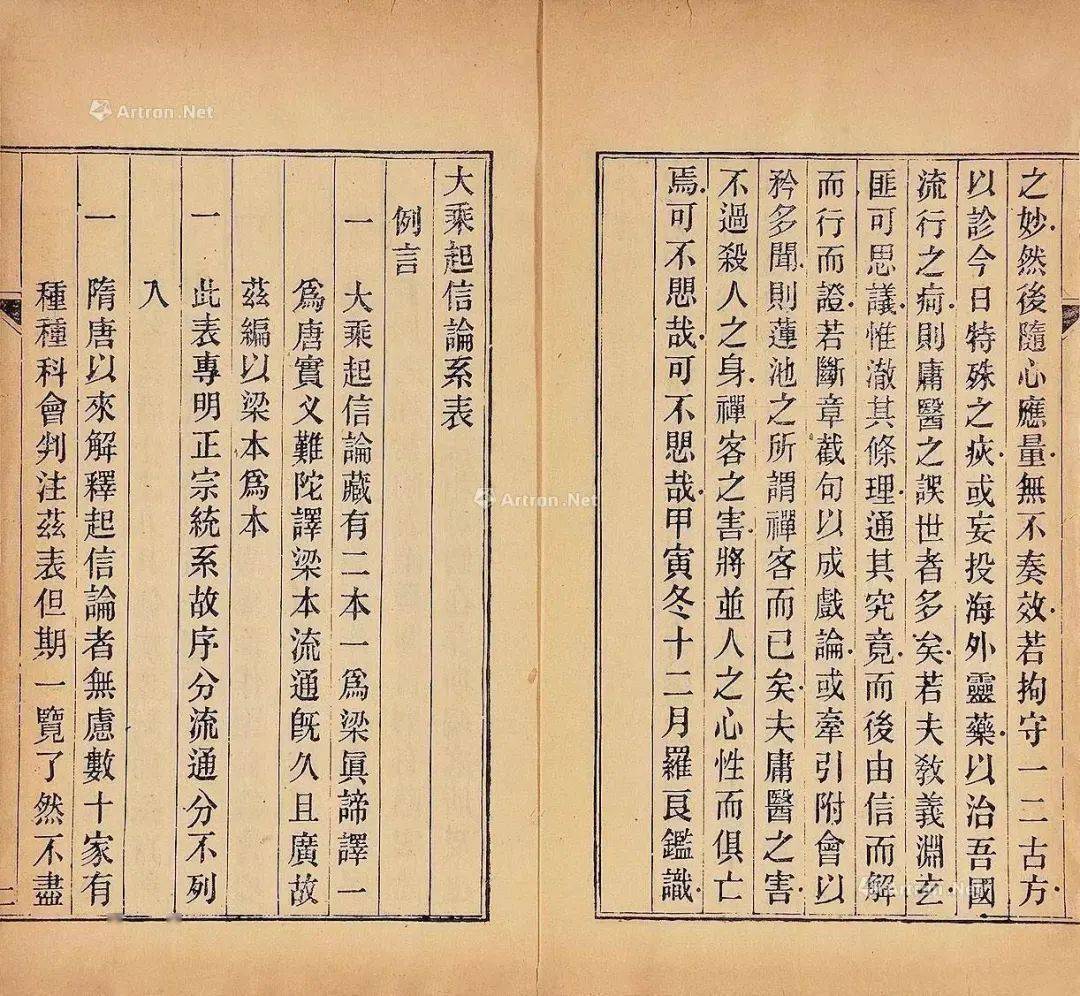 之妙然後隨心應量無不奏效若拘守一二古方
以診今日特殊之疢或妄投海外靈藥以治吾國
流行之疴則庸醫之誤世者多矣若夫敎義淵玄
匪可思議惟澈其條理通其究竟而後由信而解
而行而證若斷章截句以成戲論或牽引附會以
矜多聞則蓮池之所謂禪客而已矣夫庸醫之害
不過殺人之身禪客之害將並人之心性而俱亡
焉可不悲哉可不悲哉甲寅冬十二月羅良鑑識
大乘起信論系表
例言
一 大乘起信論藏有二本一爲梁眞諦譯一
爲唐實叉難陀譯梁本流通旣久且廣故
茲編以梁本爲本
一 此表專明正宗統系故序分流通分不列
入
一 隋唐以來解釋起信論者無慮數十家有
種種科會判注茲表但期一覽了然不盡
Artron.Net
Artron.Net
Artron.Net